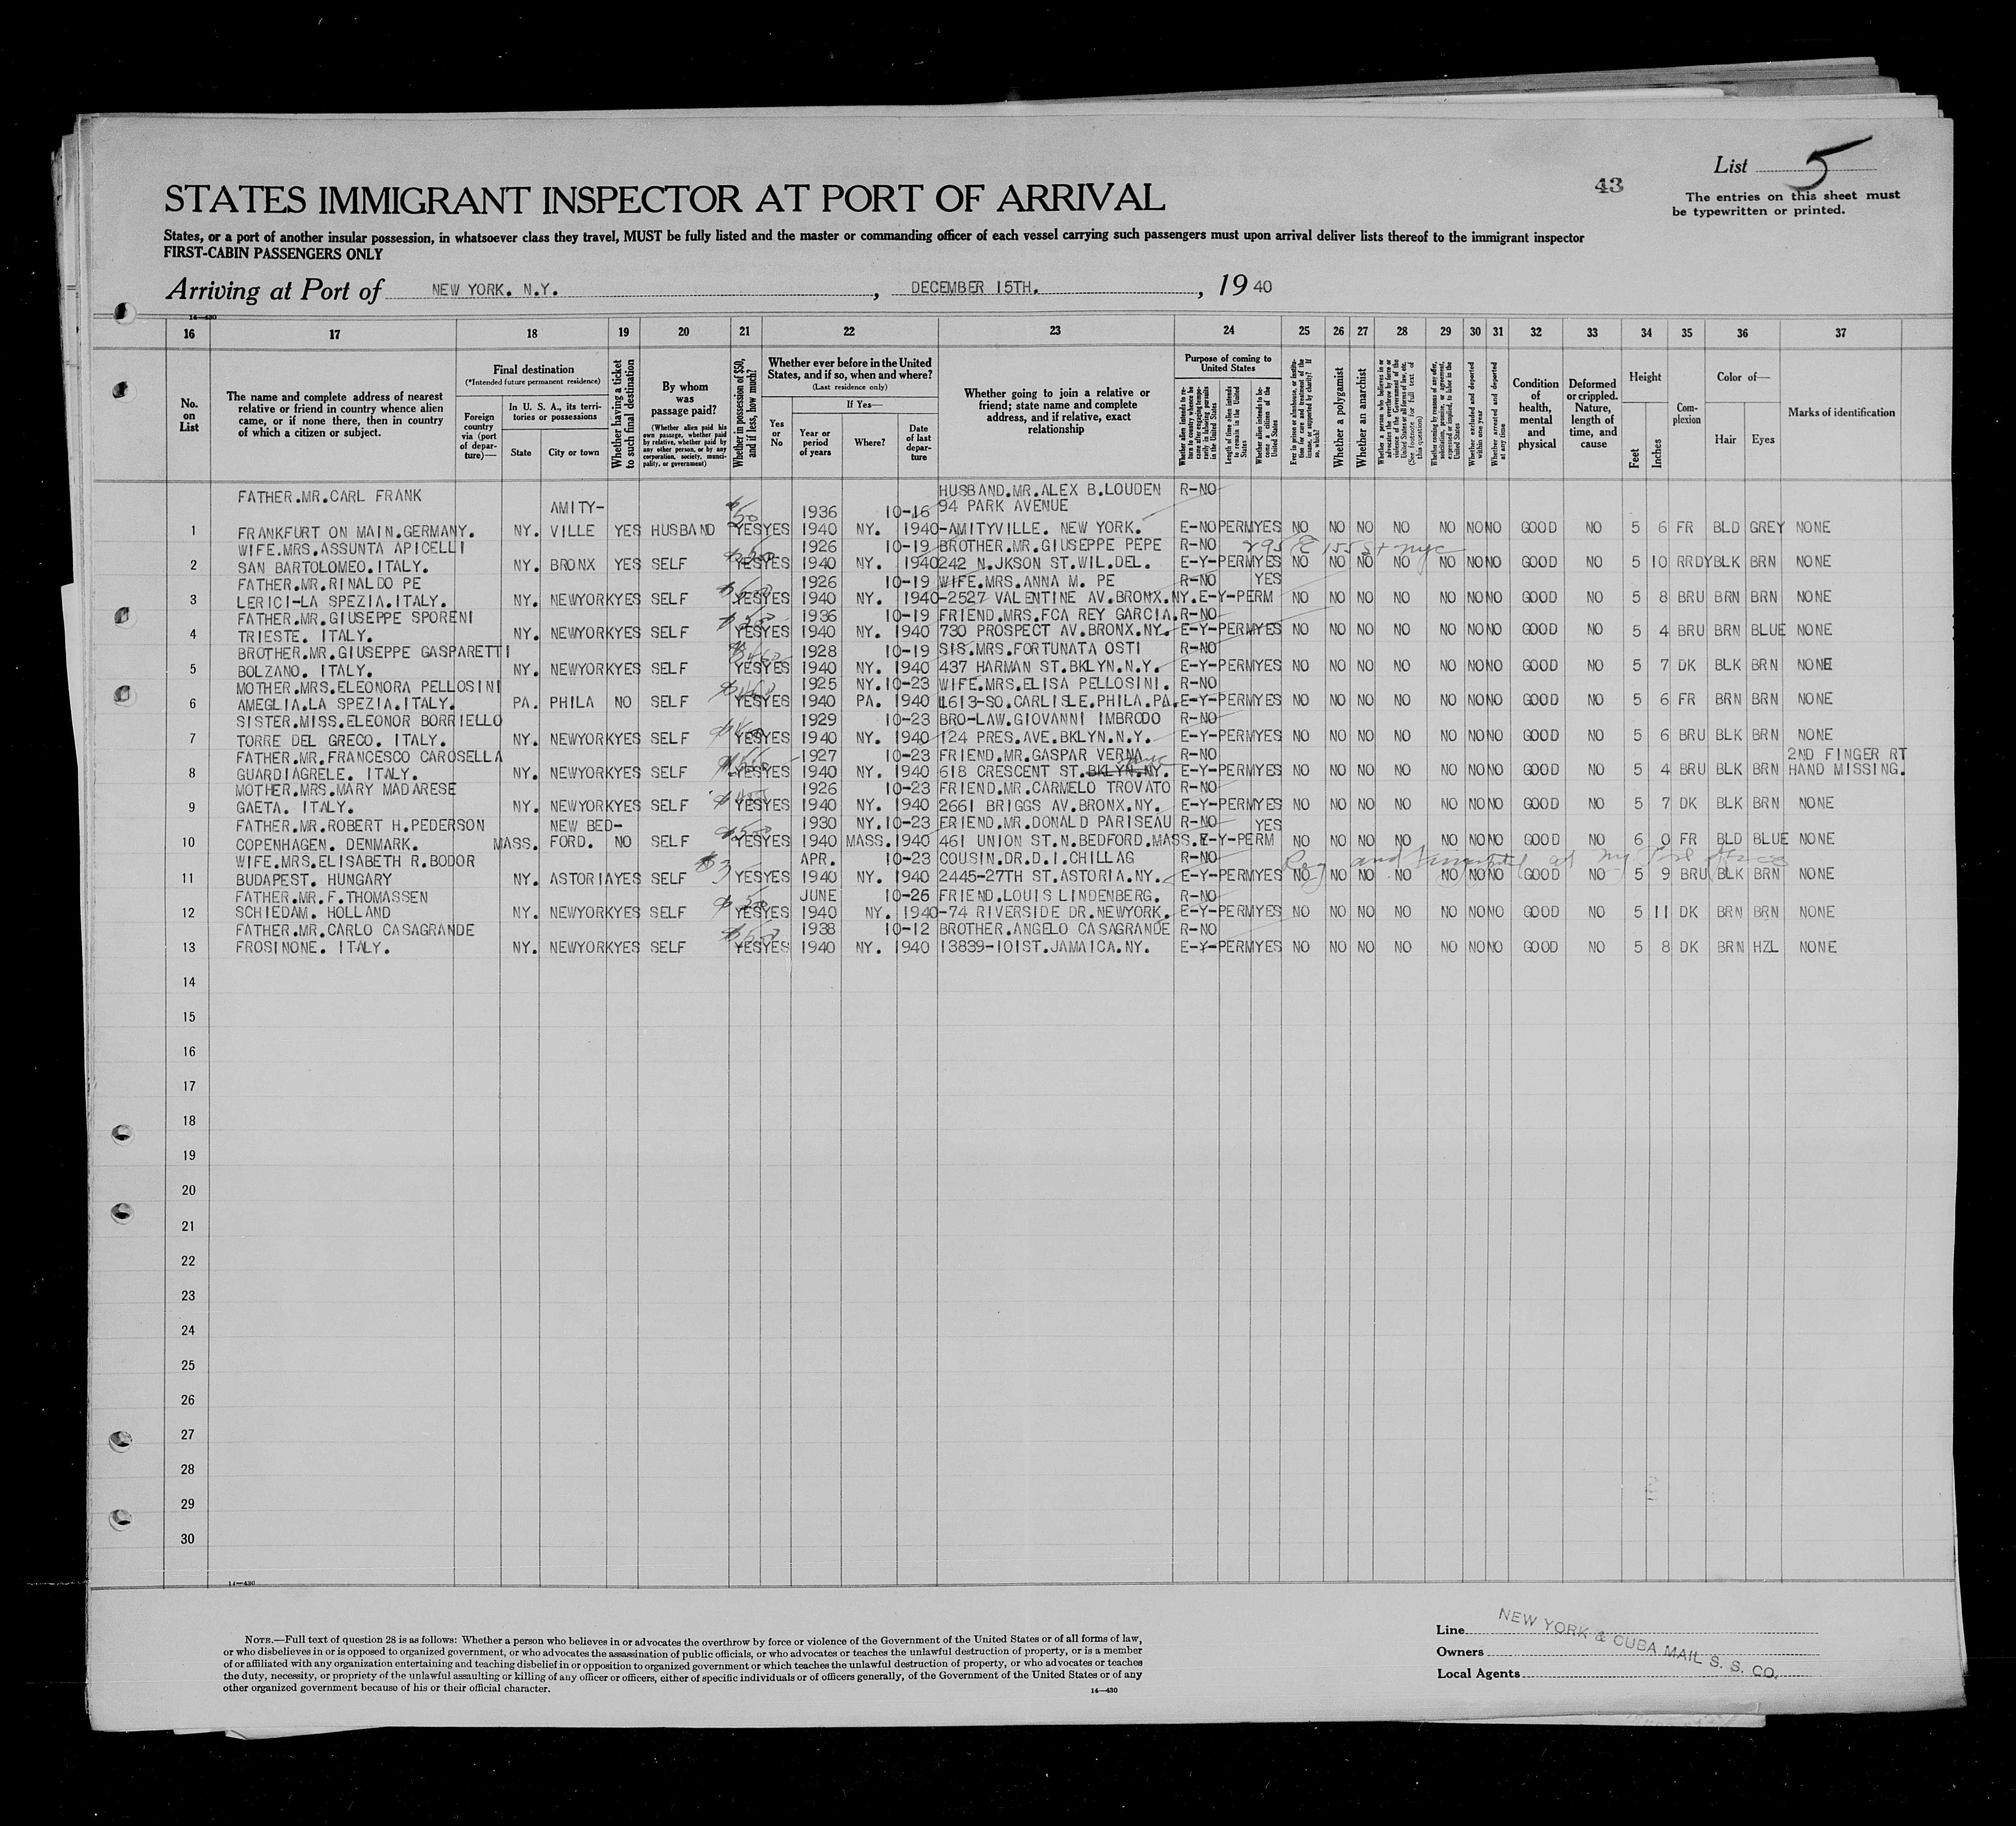 List 5
43
The entries on this sheet must
be typewritten or printed.
STATES IMMIGRANT INSPECTOR AT PORT OF ARRIVAL
States, or a port of another insular possession, in whatsoever class they travel, MUST be fully listed and the master or commanding officer of each vessel carrying such passengers must upon arrival deliver lists thereof to the immigrant inspector
FIRST-CABIN PASSENGERS ONLY
Arriving at Port of NEW YORK. N.Y. , DECEMBER 15TH. , 19 40
14—430
16 17 18 19 20 21 22 23 24 25 26 27 28 29 30 31 32 33 34 35 36 37
No. on List
The name and complete address of nearest relative or friend in country whence alien came, or if none there, then in country of which a citizen or subject.
Final destination
(*Intended future permanent residence)
Foreign country via (port of departure)—
In U. S. A., its territories or possessions
State
City or town
Whether having a ticket to such final destination
By whom was passage paid?
(Whether alien paid his own passage, whether paid by relative, whether paid by any other person, or by any corporation, society, municipality, or government)
Whether in possession of $50, and if less, how much?
Whether ever before in the United States, and if so, when and where?
(Last residence only)
Yes or No
If Yes—
Year or period of years
Where?
Date of last departure
Whether going to join a relative or friend; state name and complete address, and if relative, exact relationship
Purpose of coming to United States
Whether alien intends to return to country whence he came after engaging temporarily in laboring pursuits in the United States
Length of time alien intends to remain in the United States
Whether alien intends to become a citizen of the United States
Ever in prison or almshouse, or institution for care and treatment of the insane, or supported by charity? If so, which?
Whether a polygamist
Whether an anarchist
Whether excluded and deported within one year
Whether arrested and deported at any time
Condition of health, mental and physical
Deformed or crippled. Nature, length of time, and cause
Height
Feet
Inches
Complexion
Color of—
Hair
Eyes
Marks of identification
FATHER.MR.CARL FRANK HUSBAND.MR.ALEX B.LOUDEN R-NO
AMITY- 1936 10-16 94 PARK AVENUE
1 FRANKFURT ON MAIN.GERMANY. NY. VILLE YES HUSBAND $50 YES YES 1940 NY. 1940 -AMITYVILLE. NEW YORK. E-NO PERM YES NO NO NO NO NO NO NO GOOD NO 5 6 FR BLD GREY NONE
WIFE.MRS.ASSUNTA APICELLI 1926 10-19 BROTHER.MR.GIUSEPPE PEPE R-NO 295 E 155 St nyc
2 SAN BARTOLOMEO.ITALY. NY. BRONX YES SELF YES YES 1940 NY. 1940 242 N.JKSON ST.WIL.DEL. E-Y-PERM YES NO NO NO NO NO NO NO GOOD NO 5 10 RRDY BLK BRN NONE
FATHER.MR.RINALDO PE 1926 10-19 WIFE.MRS.ANNA M. PE R-NO YES
3 LERICI-LA SPEZIA.ITALY. NY. NEWYORK YES SELF YES YES 1940 NY. 1940 -2527 VALENTINE AV.BRONX.NY. E-Y-PERM NO NO NO NO NO NO NO GOOD NO 5 8 BRU BRN BRN NONE
FATHER.MR.GIUSEPPE SPORENI 1936 10-19 FRIEND.MRS.FCA REY GARCIA. R-NO
4 TRIESTE. ITALY. NY. NEWYORK YES SELF YES YES 1940 NY. 1940 730 PROSPECT AV.BRONX.NY. E-Y-PERM YES NO NO NO NO NO NO NO GOOD NO 5 4 BRU BRN BLUE NONE
BROTHER.MR.GIUSEPPE GASPARETTI 1928 10-19 SIS.MRS.FORTUNATA OSTI R-NO
5 BOLZANO. ITALY. NY. NEWYORK YES SELF YES YES 1940 NY. 1940 437 HARMAN ST.BKLYN.N.Y. E-Y-PERM YES NO NO NO NO NO NO NO GOOD NO 5 7 DK BLK BRN NONE
MOTHER.MRS.ELEONORA PELLOSINI 1925 NY. 10-23 WIFE.MRS.ELISA PELLOSINI. R-NO
6 AMEGLIA.LA SPEZIA.ITALY. PA. PHILA NO SELF YES YES 1940 PA. 1940 1613-SO.CARLISLE.PHILA.PA. E-Y-PERM YES NO NO NO NO NO NO NO GOOD NO 5 6 FR BRN BRN NONE
SISTER.MISS.ELEONOR BORRIELLO 1929 10-23 BRO-LAW.GIOVANNI IMBRODO R-NO
7 TORRE DEL GRECO. ITALY. NY. NEWYORK YES SELF YES YES 1940 NY. 1940 124 PRES.AVE.BKLYN.N.Y. E-Y-PERM YES NO NO NO NO NO NO NO GOOD NO 5 6 BRU BLK BRN NONE
FATHER.MR.FRANCESCO CAROSELLA 1927 10-23 FRIEND.MR.GASPAR VERNA R-NO 2ND FINGER RT
8 GUARDIAGRELE. ITALY. NY. NEWYORK YES SELF YES YES 1940 NY. 1940 618 CRESCENT ST.BKLYN.NY. E-Y-PERM YES NO NO NO NO NO NO NO GOOD NO 5 4 BRU BLK BRN HAND MISSING.
MOTHER.MRS.MARY MADARESE 1926 10-23 FRIEND.MR.CARMELO TROVATO R-NO
9 GAETA. ITALY. NY. NEWYORK YES SELF YES YES 1940 NY. 1940 2661 BRIGGS AV.BRONX.NY. E-Y-PERM YES NO NO NO NO NO NO NO GOOD NO 5 7 DK BLK BRN NONE
FATHER.MR.ROBERT H.PEDERSON NEW BED- 1930 NY. 10-23 FRIEND.MR.DONALD PARISEAU R-NO YES
10 COPENHAGEN. DENMARK. MASS. FORD. NO SELF YES YES 1940 MASS. 1940 461 UNION ST.N.BEDFORD.MASS. E-Y-PERM NO NO NO NO NO NO NO GOOD NO 6 0 FR BLD BLUE NONE
WIFE.MRS.ELISABETH R.BODOR $3 APR. 10-23 COUSIN.DR.D.I.CHILLAG R-NO
11 BUDAPEST. HUNGARY NY. ASTORIA YES SELF YES YES 1940 NY. 1940 2445-27TH ST.ASTORIA.NY. E-Y-PERM YES NO NO NO NO NO NO NO GOOD NO 5 9 BRU BLK BRN NONE
FATHER.MR.F.THOMASSEN JUNE 10-26 FRIEND.LOUIS LINDENBERG. R-NO
12 SCHIEDAM. HOLLAND NY. NEWYORK YES SELF YES YES 1940 NY. 1940 -74 RIVERSIDE DR.NEWYORK. E-Y-PERM YES NO NO NO NO NO NO NO GOOD NO 5 11 DK BRN BRN NONE
FATHER.MR.CARLO CASAGRANDE 1938 10-12 BROTHER.ANGELO CASAGRANDE R-NO
13 FROSINONE. ITALY. NY. NEWYORK YES SELF YES YES 1940 NY. 1940 13839-101ST.JAMAICA.NY. E-Y-PERM YES NO NO NO NO NO NO NO GOOD NO 5 8 DK BRN HZL NONE
14
15
16
17
18
19
20
21
22
23
24
25
26
27
28
29
30
14—430
NOTE.—Full text of question 28 is as follows: Whether a person who believes in or advocates the overthrow by force or violence of the Government of the United States or of all forms of law,
or who disbelieves in or is opposed to organized government, or who advocates the assassination of public officials, or who advocates or teaches the unlawful destruction of property, or is a member
of or affiliated with any organization entertaining and teaching disbelief in or opposition to organized government or which teaches the unlawful destruction of property, or who advocates or teaches
the duty, necessity, or propriety of the unlawful assaulting or killing of any officer or officers, either of specific individuals or of officers generally, of the Government of the United States or of any
other organized government because of his or their official character.
14—430
Line
Owners
Local Agents
NEW YORK & CUBA MAIL S. S. CO.